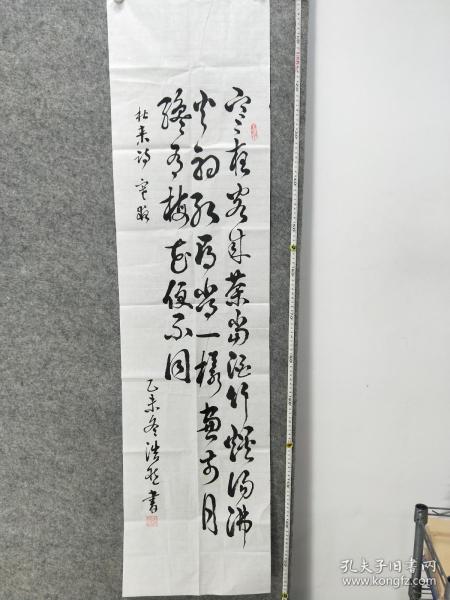 寒夜客来茶当酒竹炉汤沸
火初红寻常一样窗前月
才有梅花便不同
杜耒诗 寒夜
乙未冬浩 书
孔夫子旧书网
www.kongfz.com